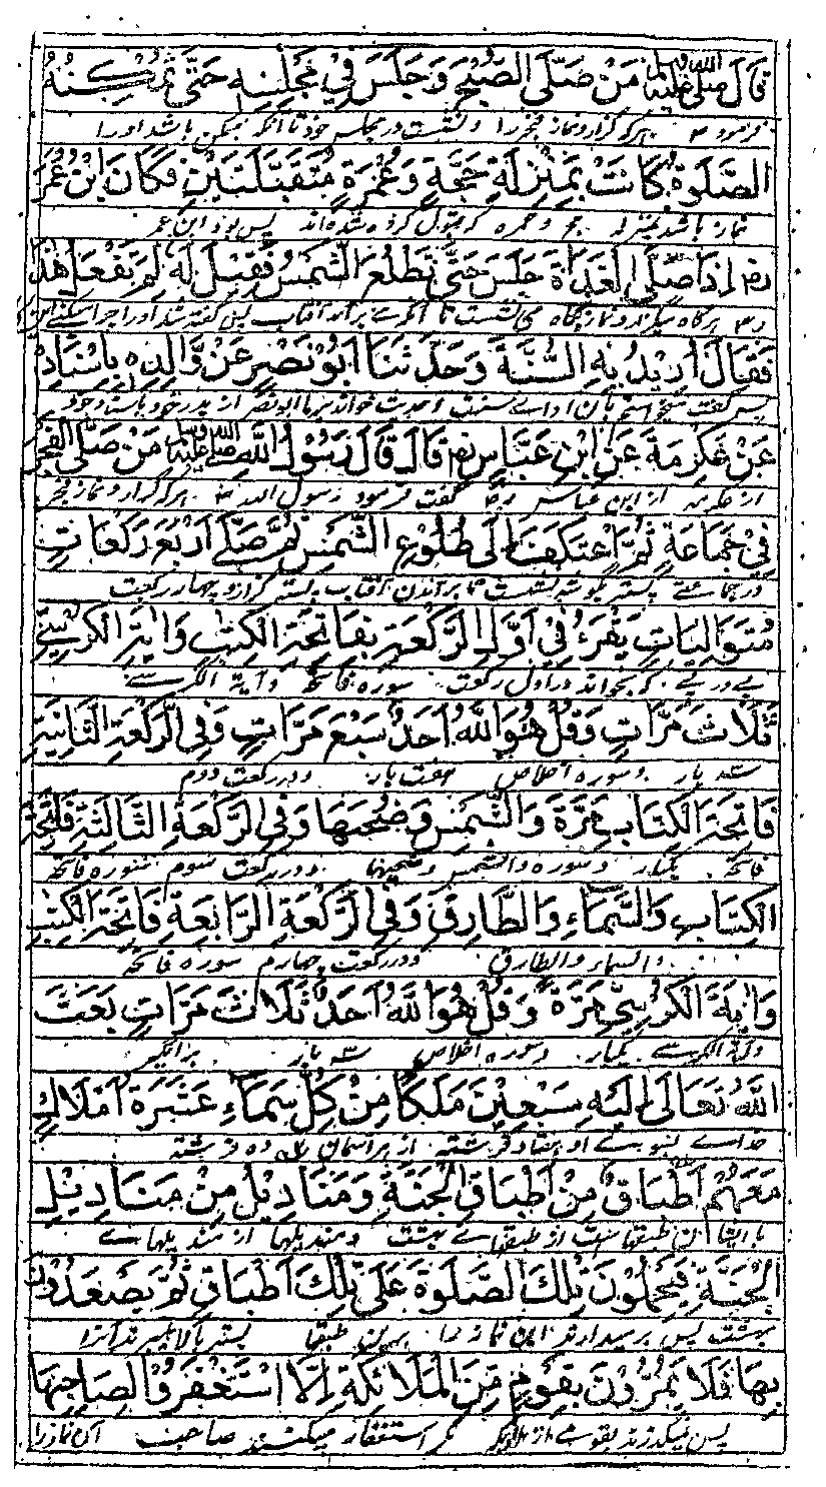 قَالَ صلى الله عليه وسلم مَنْ صَلَّى الصُّبْحَ وَجَلَسَ فِيْ مَجْلِسِهِ حَتّٰى تُمْكِنُهُ
فرمود ؐ هرکه گزارد نماز فجر را و نشست در مجلس خود تا آنکه ممکن باشد او را
الصَّلٰوةُ كَانَتْ بِمَنْزِلَةِ حَجَّةٍ وَعُمْرَةٍ مُتَقَبَّلَتَيْنِ فَكَانَ ابْنُ عُمَرَ
نماز باشد بمنزله حج و عمره که قبول کرده شده‌اند پس بود ابن عمر
رض اِذَا صَلَّى الْغَدَاةَ جَلَسَ حَتّٰى تَطْلُعَ الشَّمْسُ فَقِيْلَ لَهُ لِمَ تَفْعَلُ هٰذَا
رض هرگاه میگزارد نماز پگاه می نشست تا آنکه برآید آفتاب پس گفته شد او را چرا میکنی این را
فَقَالَ اُرِيْدُ بِهِ السُّنَّةَ وَحَدَّثَنَا اَبُوْ نَصْرٍ عَنْ وَّالِدِهِ بِاِسْنَادِهٖ
پس گفت میخواهم بآن ادای سنت و حدیث خواند برما ابونصر از پدر خود باسناد خود
عَنْ عِكْرِمَةَ عَنِ ابْنِ عَبَّاسٍ رض قَالَ قَالَ رَسُوْلُ اللّٰهِ صلى الله عليه وسلم مَنْ صَلَّى الْفَجْرَ
از عکرمه از ابن عباس گفت فرمود رسول الله ؐ هرکه گزارد نماز فجر
فِيْ جَمَاعَةٍ ثُمَّ اعْتَكَفَ اِلٰى طُلُوْعِ الشَّمْسِ ثُمَّ صَلّٰى اَرْبَعَ رَكَعَاتٍ
در جماعتی پستر بگوشه نشست تا برآمدن آفتاب پستر گزارد چهار رکعت
مُتَوَالِيَاتٍ يَقْرَءُ فِيْ اَوَّلِ الرَّكْعَةِ بِفَاتِحَةِ الْكِتٰبِ وَاٰيَةِ الْكُرْسِيِّ
پی در پی که بخواند در اول رکعت سوره فاتحه و آیة الکرسی
ثَلَاثَ مَرَّاتٍ وَقُلْ هُوَ اللّٰهُ اَحَدٌ سَبْعَ مَرَّاتٍ وَفِي الرَّكْعَةِ الثَّانِيَةِ
سه بار و سوره اخلاص هفت بار و در رکعت دوم
فَاتِحَةَ الْكِتَابِ مَرَّةً وَالشَّمْسِ وَضُحٰىهَا وَفِي الرَّكْعَةِ الثَّالِثَةِ فَاتِحَةَ
فاتحه یکبار و سوره والشمس وضحیها و در رکعت سوم سوره فاتحه
الْكِتَابِ وَالسَّمَاءِ وَالطَّارِقِ وَفِي الرَّكْعَةِ الرَّابِعَةِ فَاتِحَةَ الْكِتٰبِ
والسماء والطارق و در رکعت چهارم سوره فاتحه
وَاٰيَةَ الْكُرْسِيِّ مَرَّةً وَقُلْ هُوَ اللّٰهُ اَحَدٌ ثَلَاثَ مَرَّاتٍ بَعَثَ
و آیة الکرسی یکبار و سوره اخلاص سه بار برانگیزد
اللّٰهُ تَعَالٰى اِلَيْهِ سَبْعِيْنَ مَلَكًا مِنْ كُلِّ سَمَاءٍ عَشَرَةَ اَمْلَاكٍ
خدای بسوی او هفتاد فرشته از هر آسمان ده فرشته
مَعَهُمْ اَطْبَاقٌ مِنْ اَطْبَاقِ الْجَنَّةِ وَمَنَادِيْلُ مِنْ مَنَادِيْلِ
با ایشان طبقها است از طبقهای بهشت و مندیلها از مندیلهای
الْجَنَّةِ فَيَحْمِلُوْنَ تِلْكَ الصَّلٰوةَ عَلٰى تِلْكَ اَطْبَاقِ ثُمَّ يَصْعَدُوْنَ
بهشت پس برمیدارند این نماز را برین طبقها پستر بالا میبرند آنرا
بِهَا فَلَا يَمُرُّوْنَ بِقَوْمٍ مِنَ الْمَلَائِكَةِ اِلَّا اسْتَغْفَرُوْا لِصَاحِبِهَا
پس نمیگذرند بقومی از ملائکه مگر استغفار میکنند صاحب آن نماز را